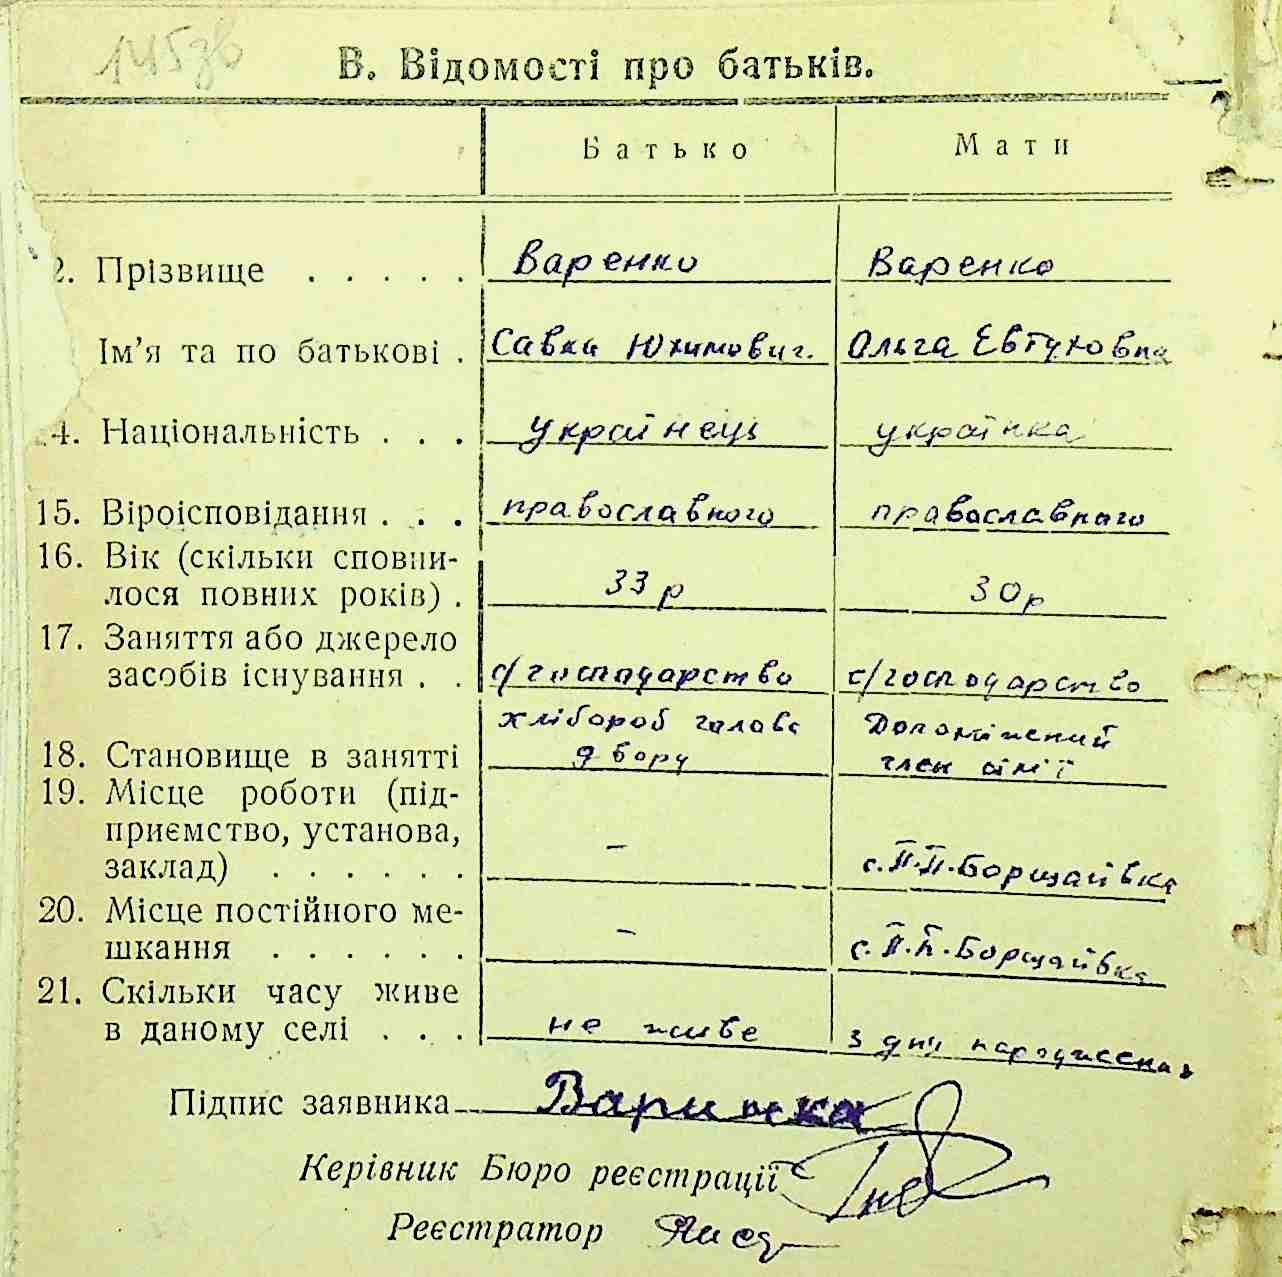 145зв
В. Відомості про батьків.
Батько Мати
2. Прізвище . . . . . Варенко Варенко
Ім'я та по батькові . Савка Юхимович. Ольга Евтуховна
4. Національність . . . українець українка
15. Віроісповідання . . . православного православного
16. Вік (скільки сповни-
лося повних років) . 33 р 30 р
17. Заняття або джерело
засобів існування . . с/господарство с/господарство
хлібороб голова Допоміжний
18. Становище в занятті двору член сімії
19. Місце роботи (під-
приємство, установа,
заклад) . . . . . . – с. П.П.Борщаївка
20. Місце постійного ме-
шкання . . . . . . – с. П.П.Борщаївка
21. Скільки часу живе
в даному селі . . . не живе з дня народження
Підпис заявника
Керівник Бюро реєстрації
Реєстратор